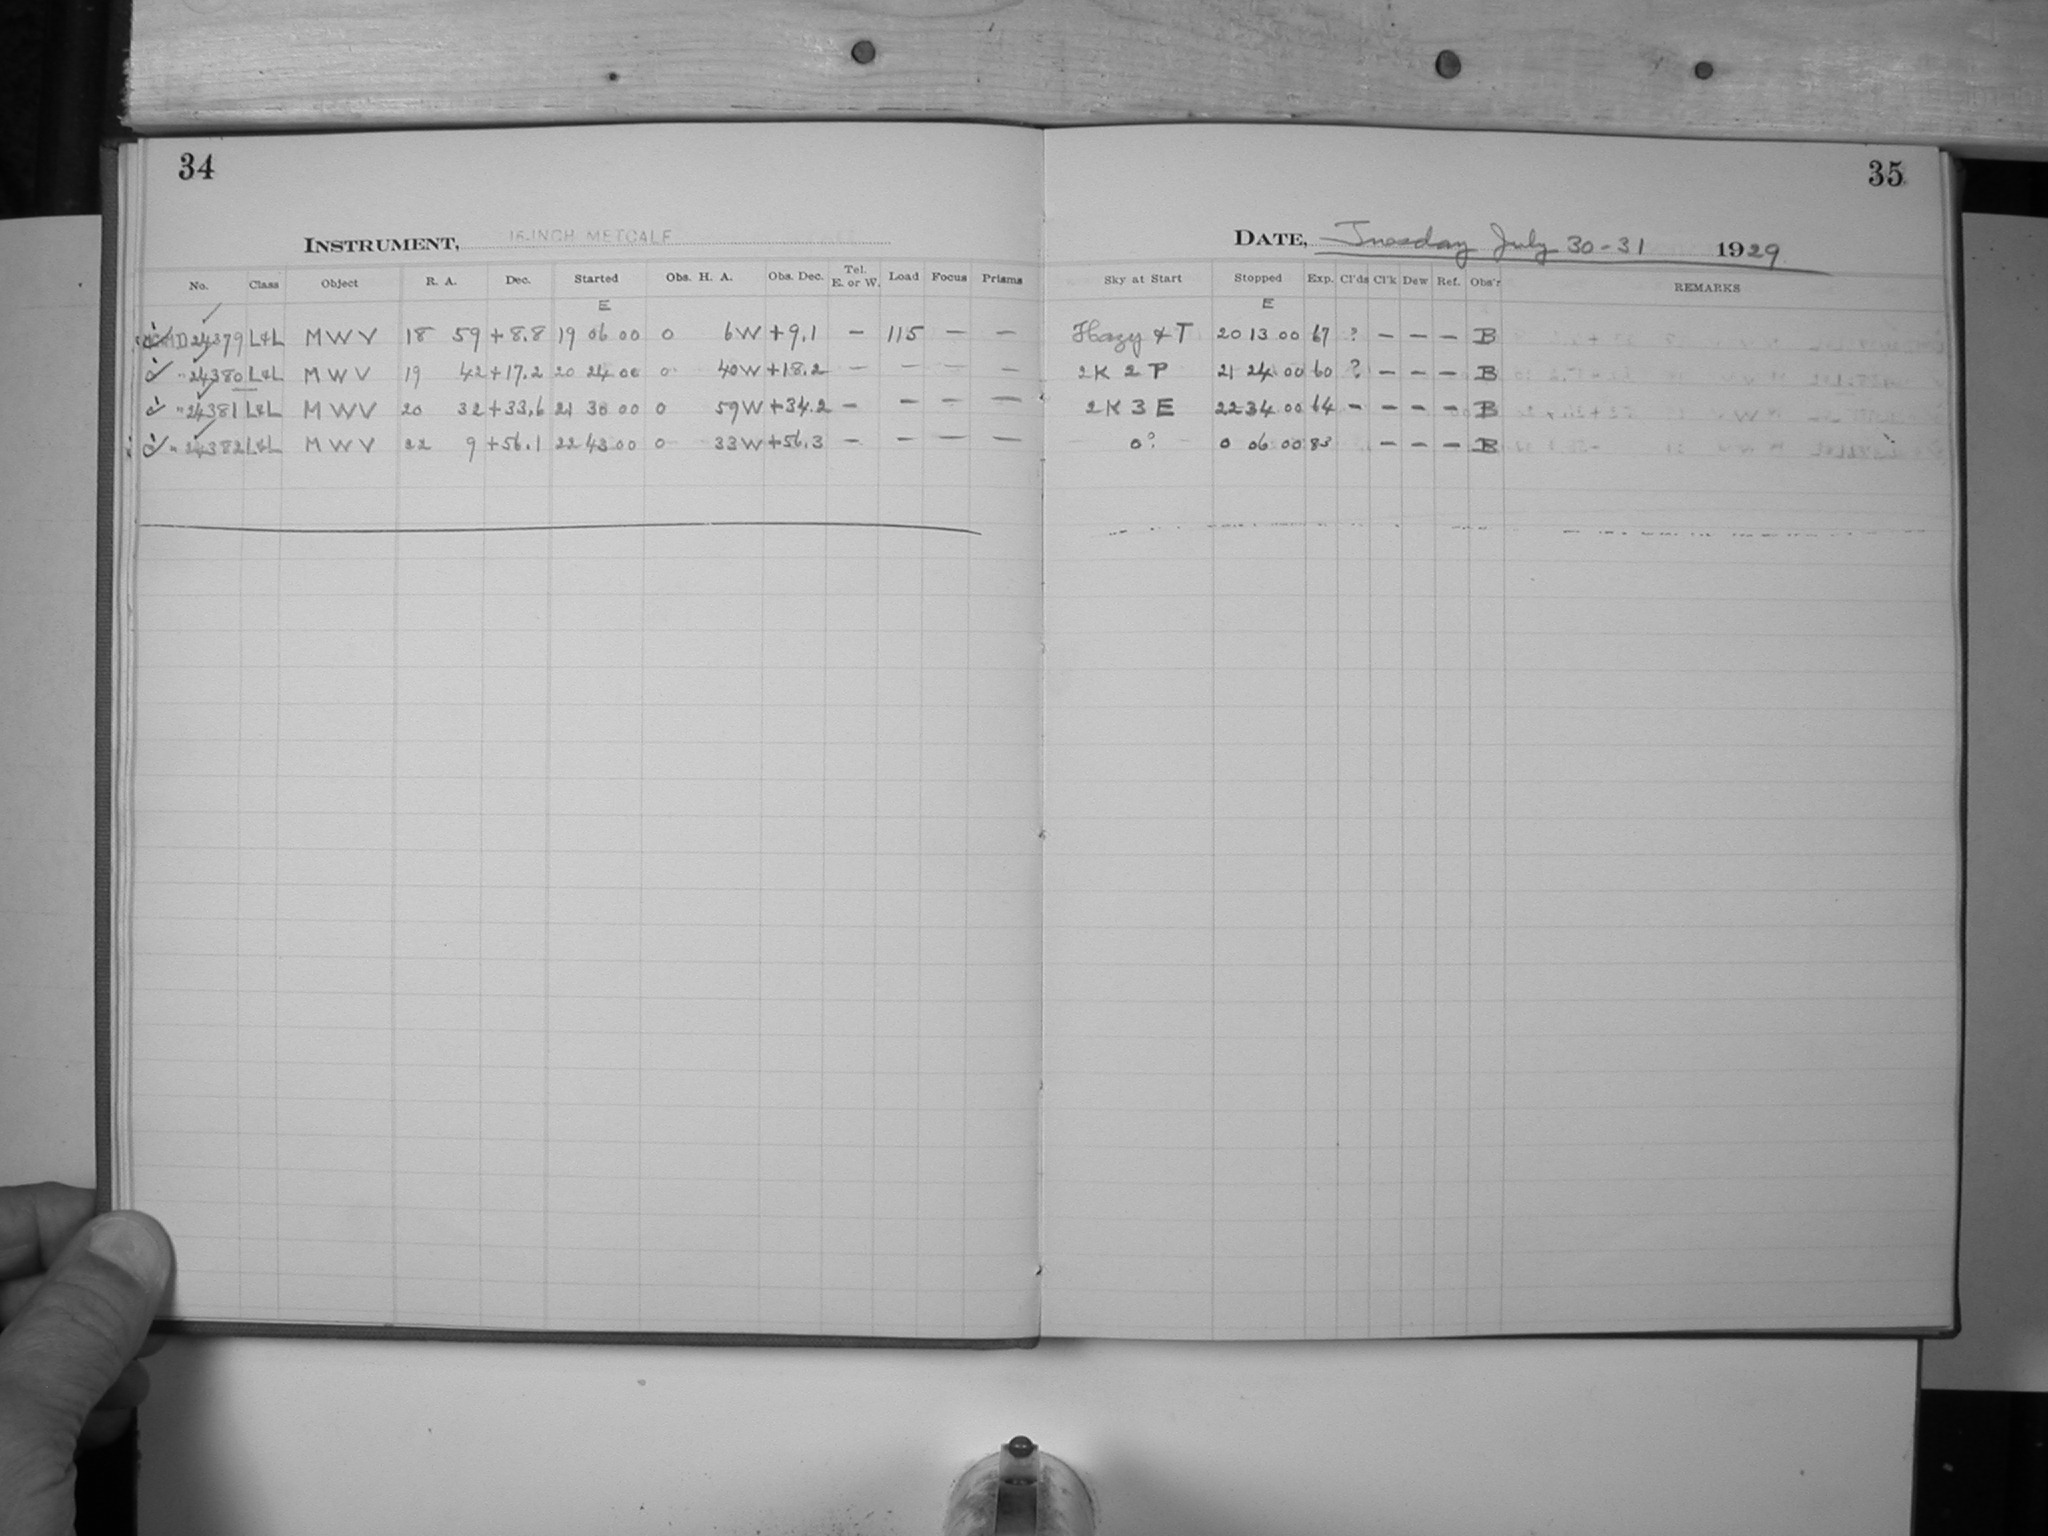 34
35
INSTRUMENT, 16-INCH METCALF
DATE, Tuesday July 30-31 1929
No. Class Object R. A. Dec. Started Obs. H. A. Obs. Dec. Tel. E. or W. Load Focus Prisms Sky at Start Stopped Exp. Cl'ds Cl'k Dew Ref. Obs'r REMARKS
E E
24379 L&L M W V 18 59 +8.8 19 06 00 0 6W +9.1 – 115 – – Hazy & T 20 13 00 67 ? – – – B
" 24380 L&L M W V 19 42 +17.2 20 24 00 0 40W +18.2 – – – – 2K 2P 21 24 00 60 ? – – – B
" 24381 L&L M W V 20 32 +33.6 21 30 00 0 59W +34.2 – – – – 2K 3E 22 34 00 64 – – – – B
" 24382 L&L M W V 22 9 +56.1 22 43 00 0 33W +56.3 – – – – 0? 0 06 00 83 – – – B